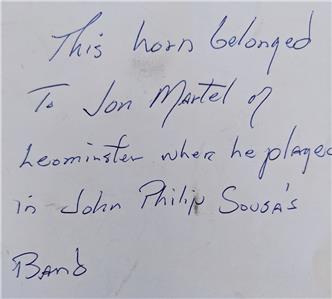 This horn belonged
To Jon Martel of
Leominster when he played
in John Philip Sousa's
Band